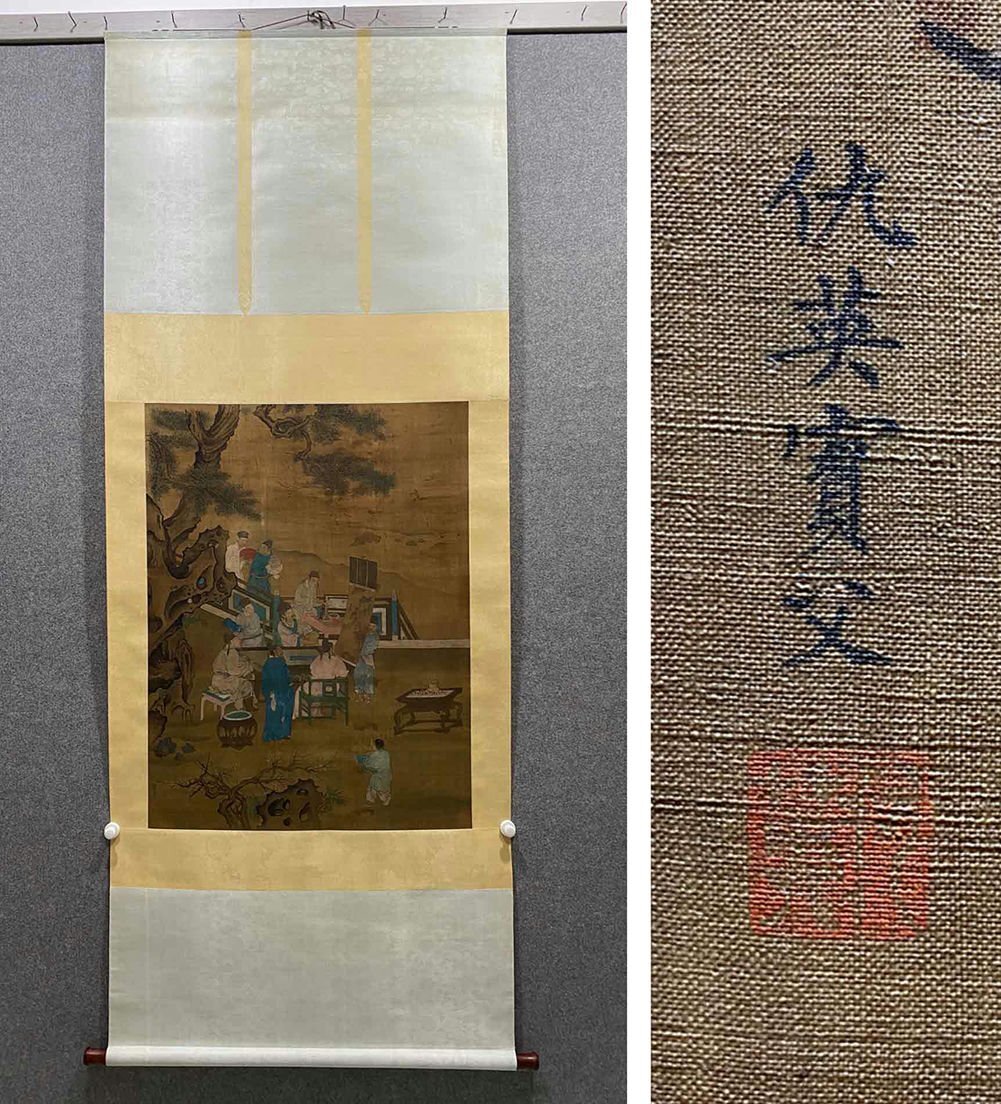 仇英實父